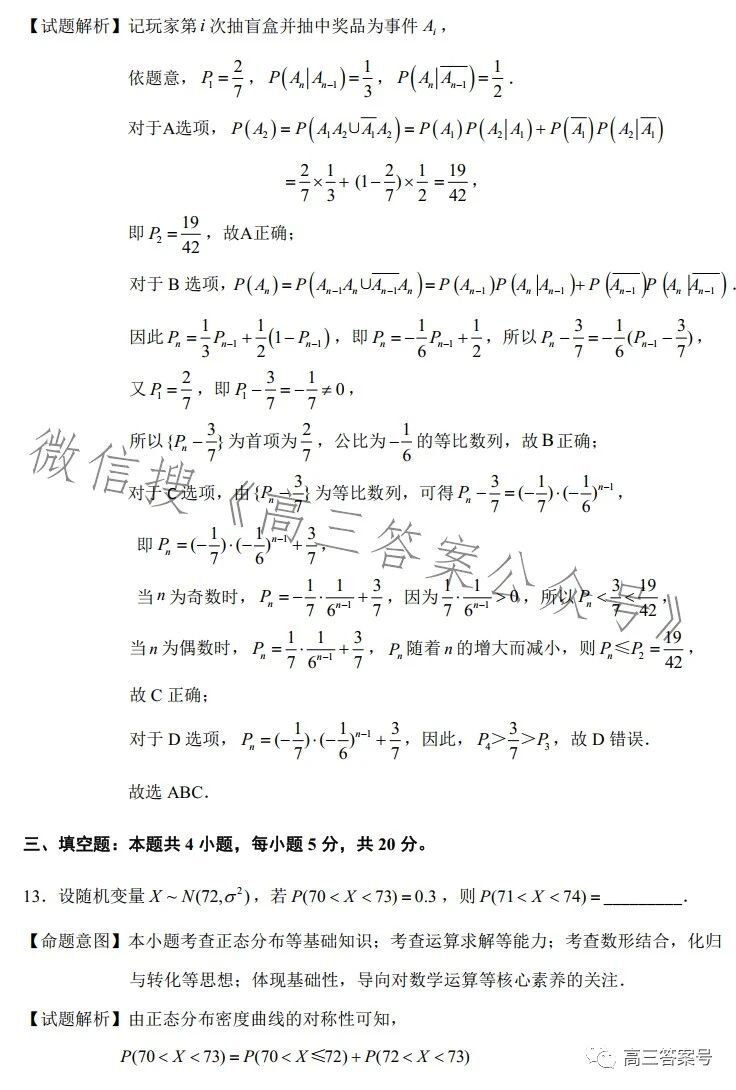 【试题解析】记玩家第 i 次抽盲盒并抽中奖品为事件 Aᵢ，
依题意，P₁ = 2/7，P(Aₙ|Aₙ₋₁) = 1/3，P(Aₙ|A̅ₙ₋₁) = 1/2．
对于A选项，P(A₂) = P(A₁A₂∪A̅₁A₂) = P(A₁)P(A₂|A₁) + P(A̅₁)P(A₂|A̅₁)
= 2/7 × 1/3 + (1 − 2/7) × 1/2 = 19/42，
即 P₂ = 19/42，故A正确；
对于 B 选项，P(Aₙ) = P(Aₙ₋₁Aₙ∪A̅ₙ₋₁Aₙ) = P(Aₙ₋₁)P(Aₙ|Aₙ₋₁) + P(A̅ₙ₋₁)P(Aₙ|A̅ₙ₋₁)．
因此 Pₙ = 1/3 Pₙ₋₁ + 1/2 (1 − Pₙ₋₁)，即 Pₙ = −1/6 Pₙ₋₁ + 1/2，所以 Pₙ − 3/7 = −1/6 (Pₙ₋₁ − 3/7)，
又 P₁ = 2/7，即 P₁ − 3/7 = −1/7 ≠ 0，
所以 {Pₙ − 3/7} 为首项为 2/7，公比为 −1/6 的等比数列，故 B 正确；
对于 C 选项，由 {Pₙ − 3/7} 为等比数列，可得 Pₙ − 3/7 = (−1/7)·(−1/6)ⁿ⁻¹，
即 Pₙ = (−1/7)·(−1/6)ⁿ⁻¹ + 3/7，
当 n 为奇数时，Pₙ = −1/7 · 1/6ⁿ⁻¹ + 3/7，因为 1/7 · 1/6ⁿ⁻¹ > 0，所以 Pₙ < 3/7 < 19/42，
当 n 为偶数时，Pₙ = 1/7 · 1/6ⁿ⁻¹ + 3/7，Pₙ 随着 n 的增大而减小，则 Pₙ ≤ P₂ = 19/42，
故 C 正确；
对于 D 选项，Pₙ = (−1/7)·(−1/6)ⁿ⁻¹ + 3/7，因此，P₄ > 3/7 > P₃，故 D 错误．
故选 ABC．
三、填空题：本题共 4 小题，每小题 5 分，共 20 分。
13．设随机变量 X ~ N(72, σ²)，若 P(70 < X < 73) = 0.3，则 P(71 < X < 74) = ________．
【命题意图】本小题考查正态分布等基础知识；考查运算求解等能力；考查数形结合，化归
与转化等思想；体现基础性，导向对数学运算等核心素养的关注．
【试题解析】由正态分布密度曲线的对称性可知，
P(70 < X < 73) = P(70 < X ≤ 72) + P(72 < X < 73)
微信搜《高三答案公众号》
高三答案号